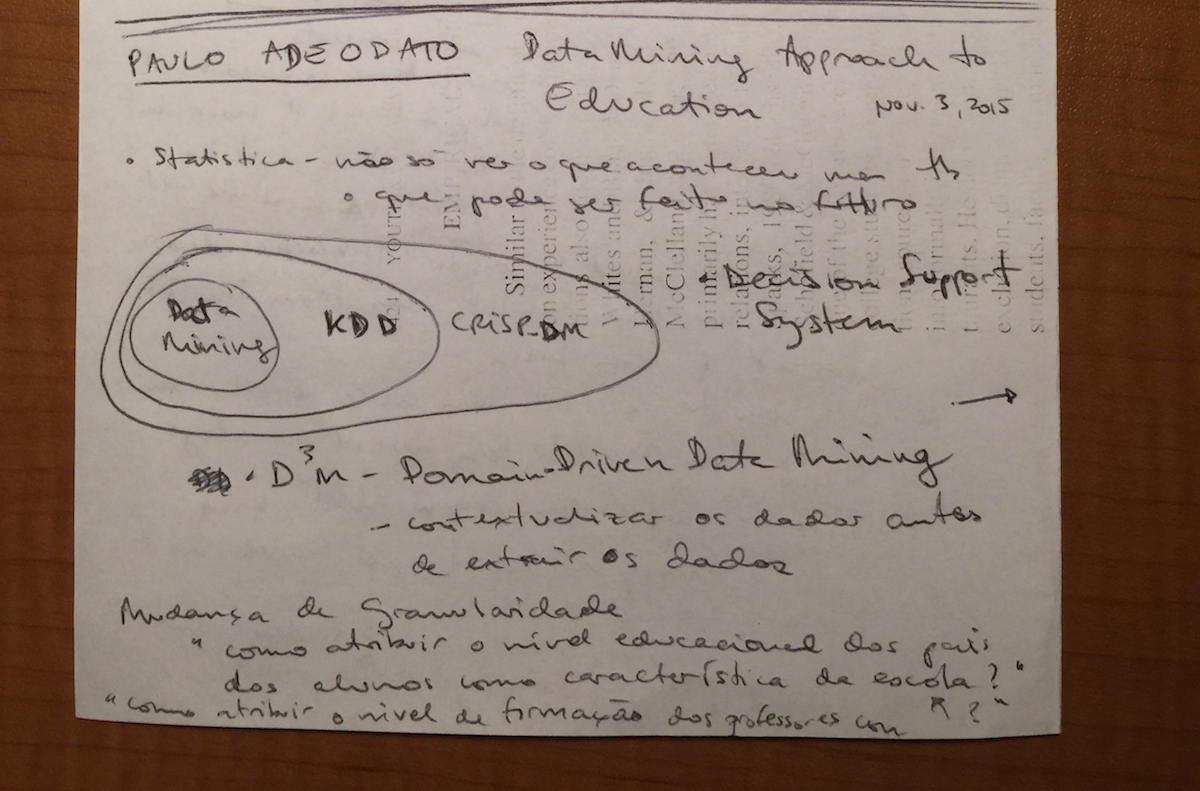 PAULO ADEODATO Data Mining Approach to
Education Nov. 3, 2015
• Statistica - não só ver o que aconteceu mas tb
o que pode ser feito no futuro
Data
Mining
KDD
CRISP-DM
• Decision Support
System
→
• D³M - Domain-Driven Data Mining
- contextualizar os dados antes
de extrair os dados
Mudança de Granularidade
"como atribuir o nível educacional dos pais
dos alunos como característica da escola?"
"como atribuir o nível de formação dos professores com ↖ ?"